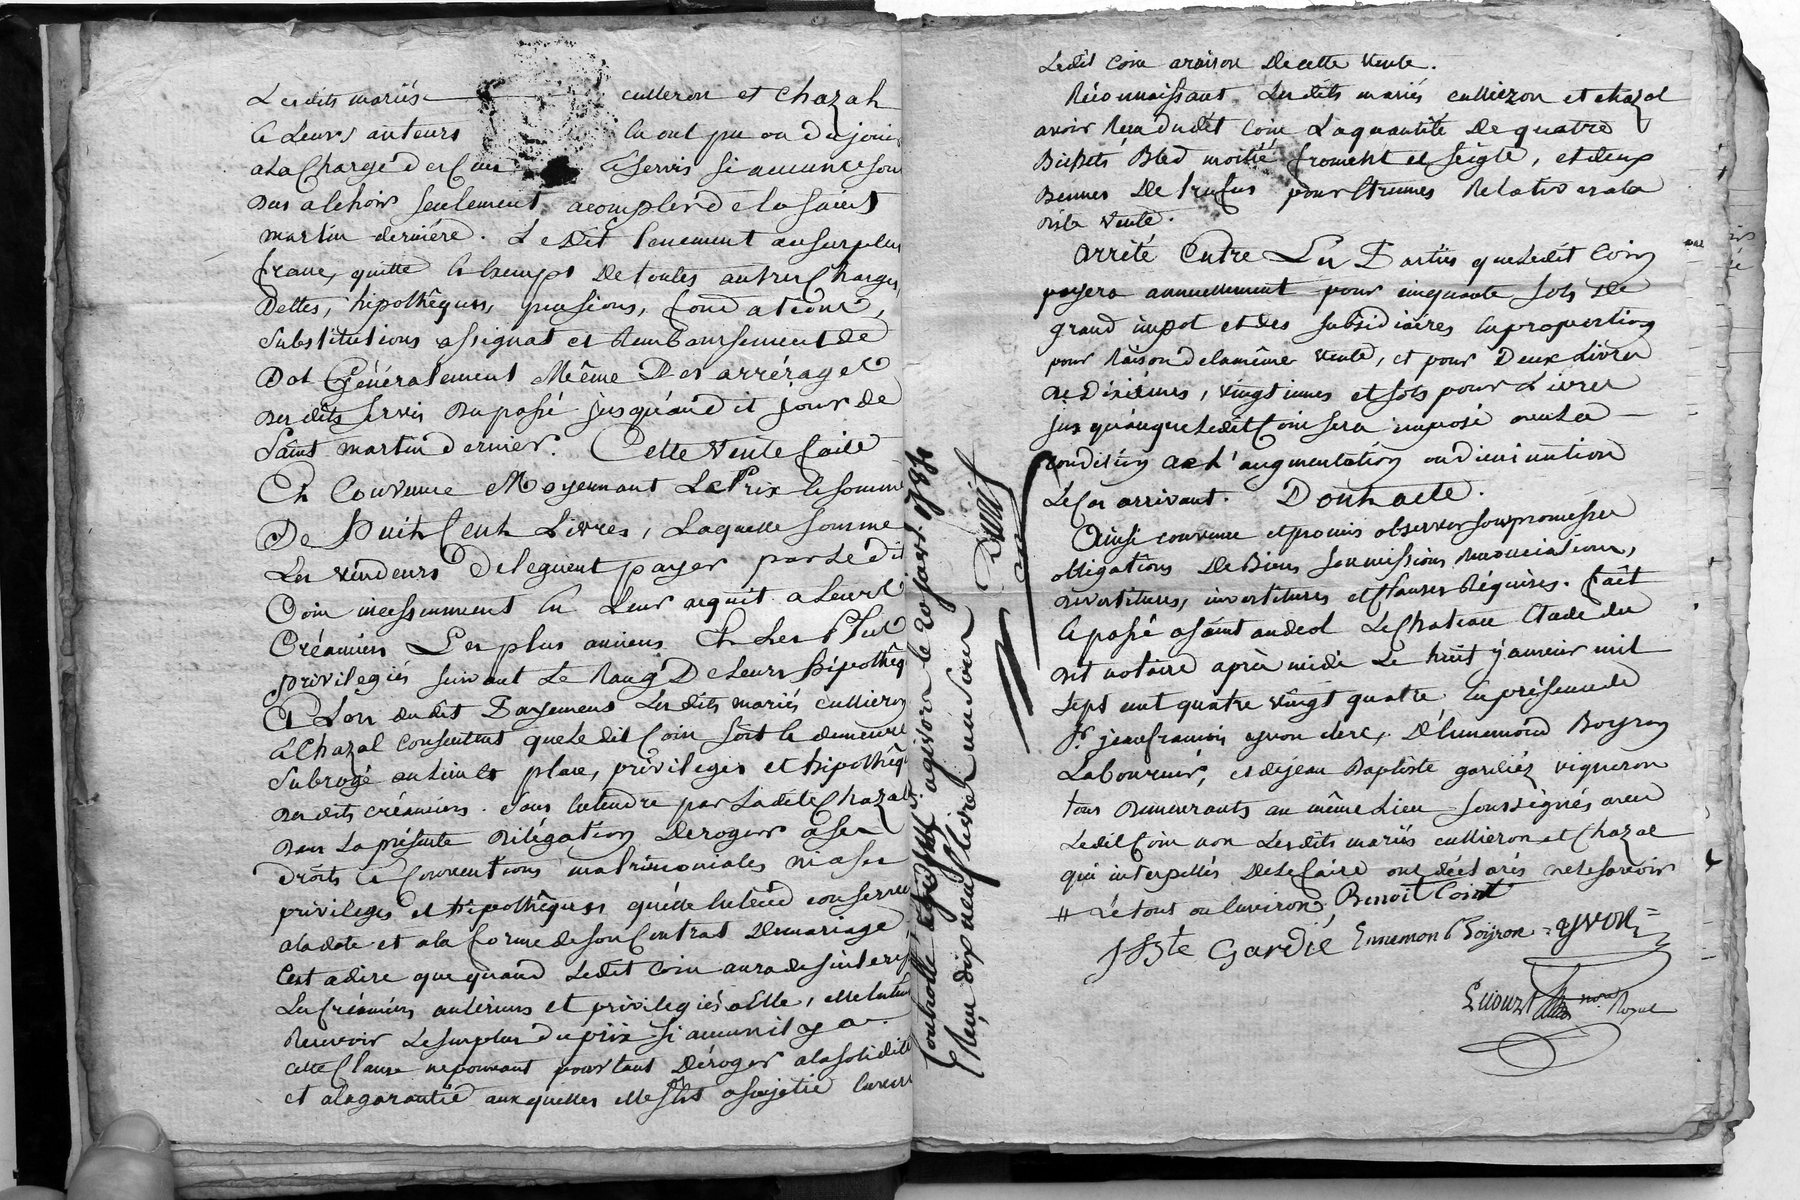 Lesdits mariés culleron et Chazal
& Leurs auteurs en ont pu ou du jouir
a La Charge des Cens & servis si aucunce sont
Dus a l'ehoir seulement acompter de la saint
martin derniére. Le Dit tenement au surplus
franc, quitte & exempt De toutes autres Charges
Dettes, hipothêques, pensions, fondations,
Substitutions assignat et Remboursement de
Dot Généralement Même Des arrérages
Des dits servis Du passé jusqu'au dit jour de
Saint martin dernier. Cette vente faite
Et Convenue Moyennant Le Prix & somme
De Huit Cent Livres, Laquelle somme
Les vendeurs Deleguent payer par Le dit
Coin incessamment En Leur aquit a Leurs
Créanciers Les plus anciens Et Les Plus
privilegiés suivant Le Rang De Leurs hipothêq
Et Lors du dit Payement Les dits mariés cullieron
& Chazal Consentent que Le dit Coin soit & demeure
Subrogé aux Lieu & place, privileges et hipothêq
Des dits créanciers. Sans Entendre par La dite Chazal
Dans La présente Délégation Deroger a ses
droits & Conventions matrimoniales ni a ses
privileges et hipothêques qu'elle Entend conserver
a la date et a la forme de son Contrat De mariage
C'est a dire que quand Ledit Coin aura desinteressé
Les Créanciers anterieurs et privilegiés a Elle, elle
Recevoir Le surplus du prix si aucun il y a.
cette Clause ne pouvant pourtant Déroger a la solidité
et a la garantie aux quelles elle s'est assujetie Envers
Controllé a givors le 20 janv. 1784
Reçu dix neuf livres un sou
Ledit Coin a raison De cette vente.
Réconnaissant Lesdits mariés cullieron et chazal
avoir Reçu dudit Coin La quantité De quatre
Bichets Bled moitié froment et seigle, et deux
Bennes De trufes pour Etrennes Relatives a la
dite vente.
Arrété Entre Les Parties que Ledit Coin
payera annuellement pour cinquante sols De
grand impot et des subsidiaires En proportion
pour Raison de la même vente, et pour Deux Livres
De Dixiémes, vingtiemes et sols pour Livres
jus qu'a ce que Ledit Coin sera imposé avec La
condition De L'augmentation ou diminution
Le Cas arrivant. Dont acte.
Ainsi convenu et promis observer sous promesses
obligations De Biens soumissions, Renonciations,
devestitures, investitures et clauses Réquises. fait
& passé a saint andeol Le Chateau Etude du
dit notaire après midi Le huit janvier mil
sept cent quatre vingt quatre, En présence de
Sr. jean françois yvon clerc, D'Ennemond Boyron
Laboureur, et de jean Baptiste gardiéz vigneron
tous Demeurants au même Lieu soussignés avec
Ledit Coin non Lesdits mariés cullieron et Chazal
qui interpellés De Le faire ont déclarés ne le savoir
# Le tout ou Environ. Benoît Coint
JBte Gardié Ennemon Boyron yvon
no.re Royal